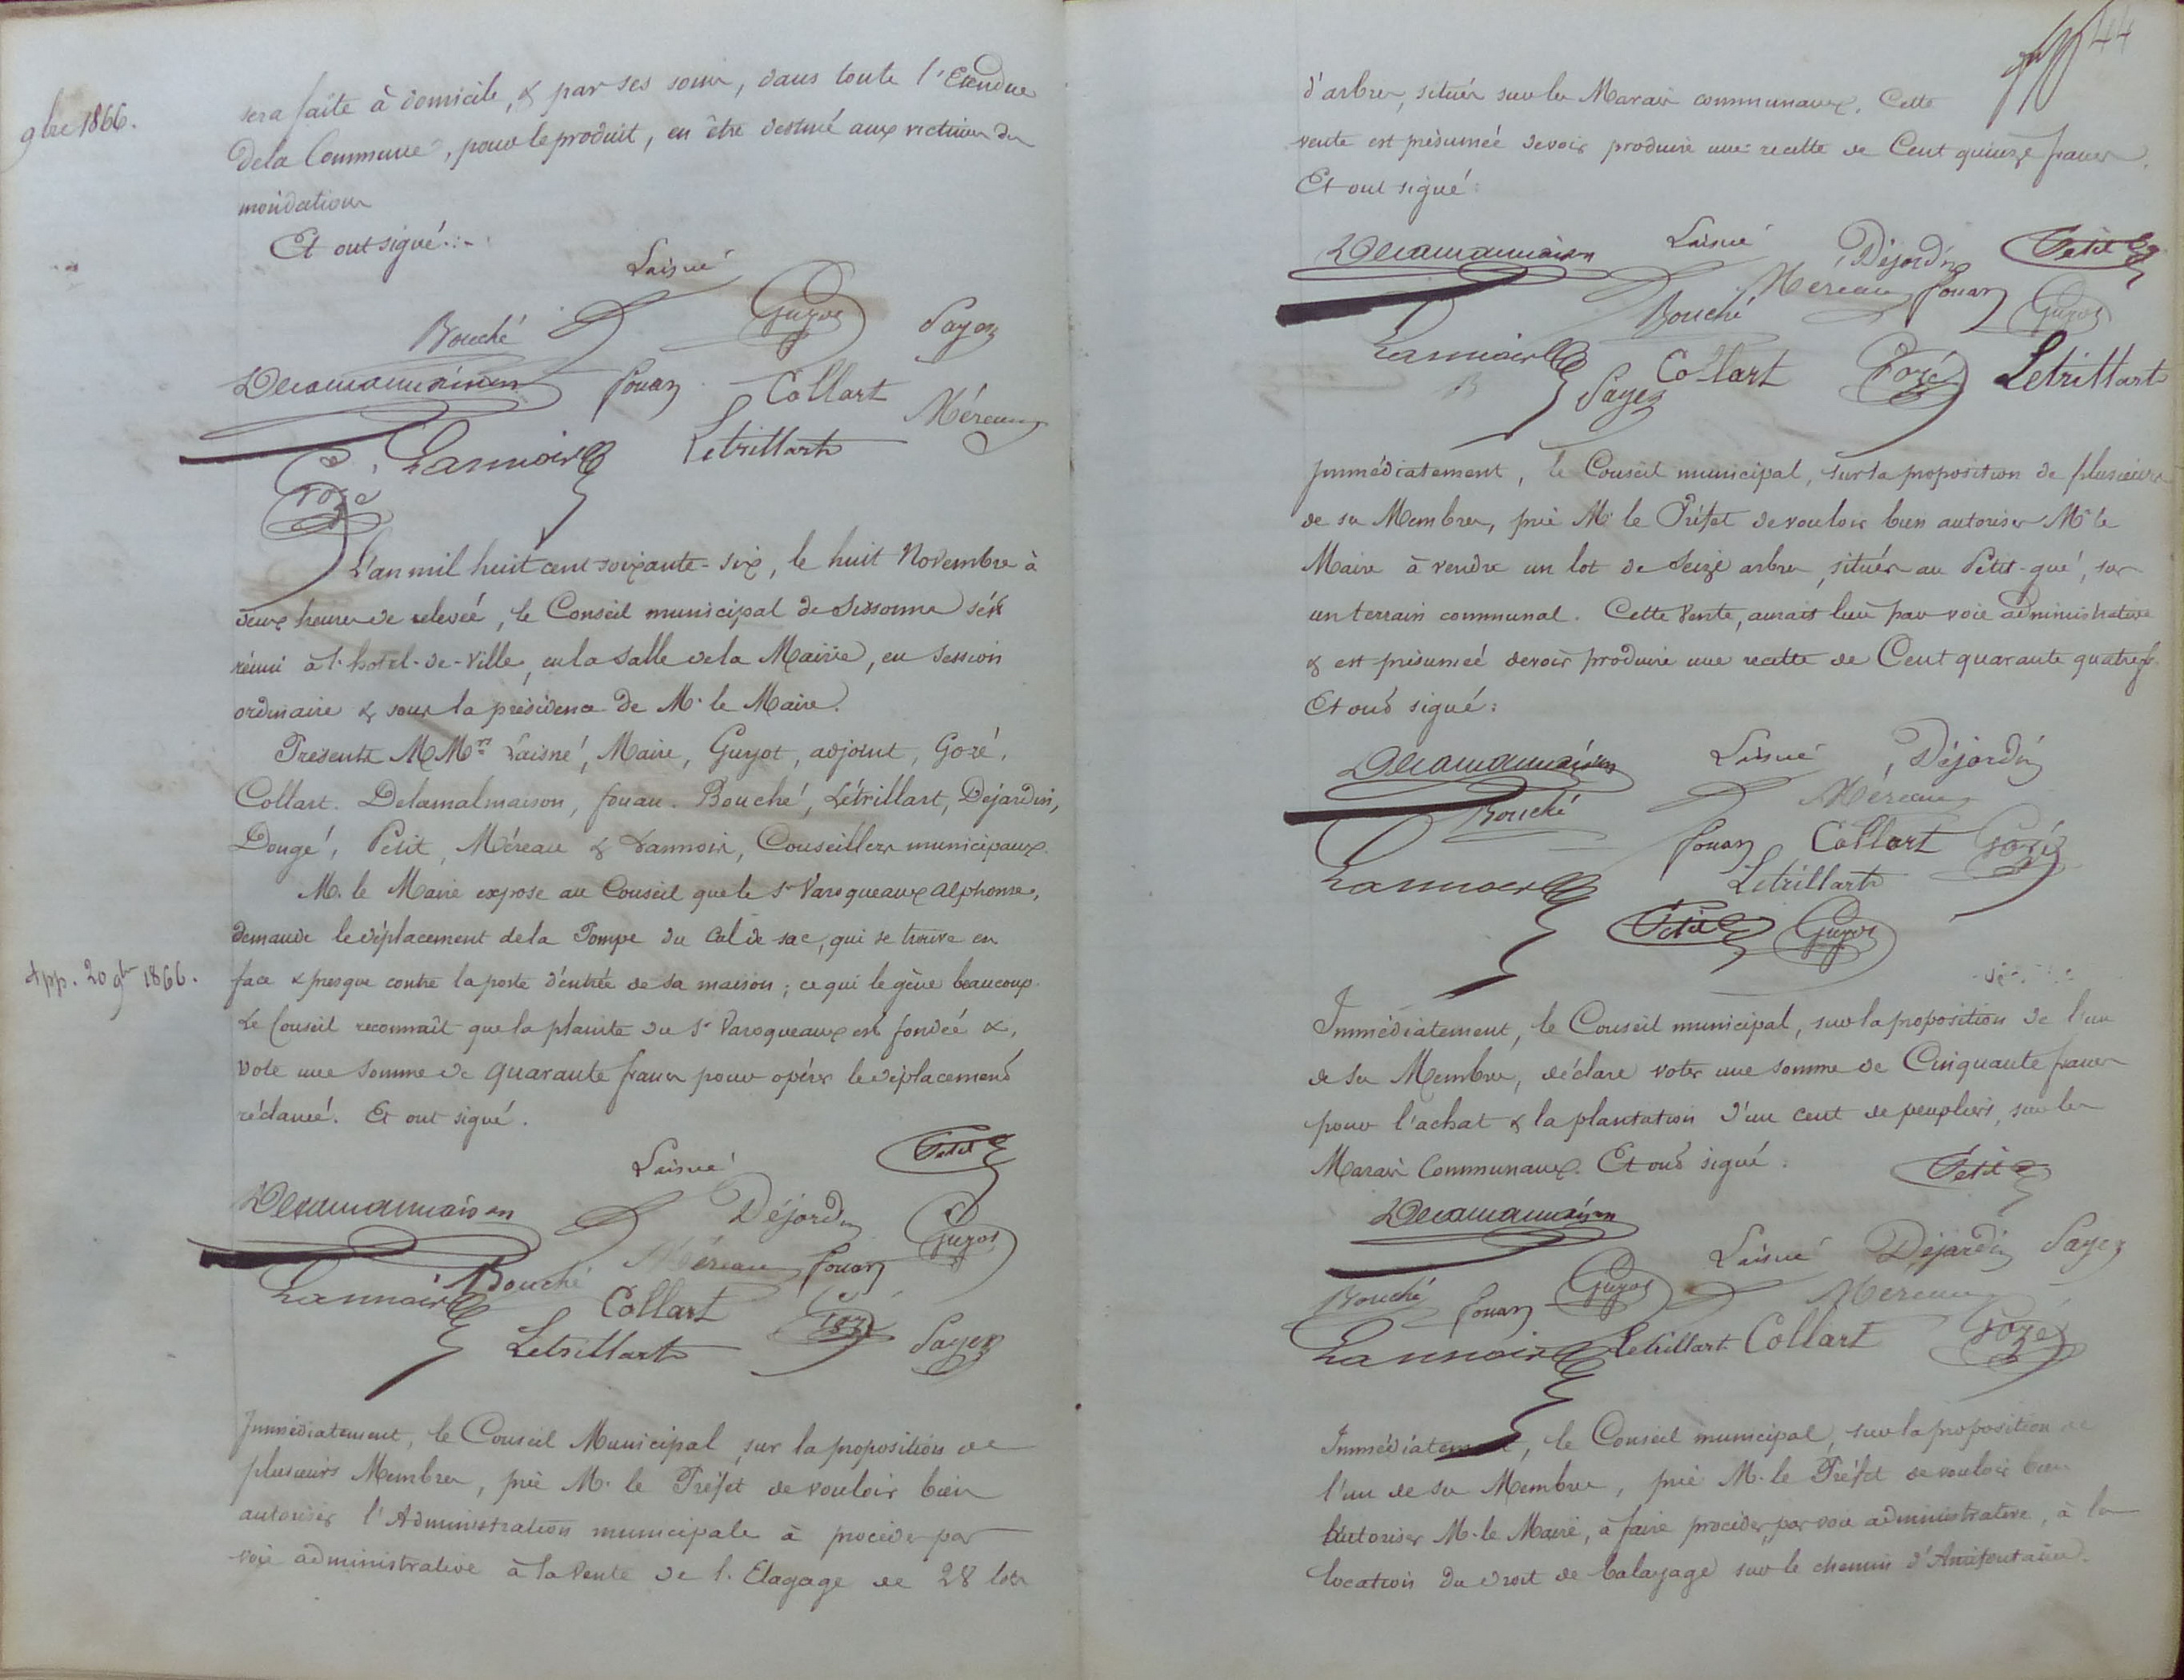 9bre 1866.
sera faite à domicile, & par ses soins, dans toute l'Etendue
de la Commune, pour le produit, en être destiné aux victimes des
inondations
Et ont signé :
Laisné
Bouché Guyot Payez
Delamalmaison fouan Collart Méreau
Lannoir Letrillart
Gozé
L'an mil huit cent soixante-six, le huit Novembre à
deux heures de relevée, le Conseil municipal de Sissonne s'est
réuni à l'hotel-de-Ville, en la Salle de la Mairie, en Session
ordinaire & sous la présidence de M. le Maire.
Présents MMrs Laisné, Maire, Guyot, adjoint, Gozé,
Collart. Delamalmaison, fouan. Bouché, Létrillart, Déjardin,
Dougé, Petit, Méreau & Lannoir, Conseillers municipaux.
M. le Maire expose au Conseil que le Sr Varoqueaux Alphonse,
demande le déplacement de la Pompe du Cul de sac, qui se trouve en
App. 20 9bre 1866.
face & presque contre la porte d'entrée de sa maison ; ce qui le gène beaucoup.
Le Conseil reconnaît que la plainte du Sr Varoqueaux est fondée &,
vote une somme de quarante francs pour opérer le déplacement
réclamé. Et ont signé.
Laisné Petit
Delamalmaison Déjardin Guyot
Lannoir Bouché Méreau fouan
Collart Gozé
Letrillart Payez
Immédiatement, le Conseil Municipal, sur la proposition de
plusieurs Membres, prie M. le Préfet de vouloir bien
autoriser l'Administration municipale à procéder par
voie administrative à la Vente de l'Elagage de 28 lots
44
d'arbres, situés sur les Marais communaux. Cette
vente est présumée devoir produire une recette de Cent quinze francs.
Et ont signé :
Delamalmaison Laisné Déjardin Petit
Bouché Méreau fouan Guyot
Lannoir Payez Collart Gozé Letrillart
Immédiatement, le Conseil municipal, sur la proposition de plusieurs
de ses Membres, prie Mr le Préfet de vouloir bien autoriser Mr le
Maire à vendre un lot de Seize arbres, situés au Petit-gué, sur
un terrain communal. Cette Vente, aurait lieu par voie administrative
& est présumée devoir produire une recette de Cent quarante quatre f.
Et ont signé :
Delamalmaison Laisné Déjardin
Bouché Méreau
Lannoir fouan Collart Gozé
Letrillart
Petit Guyot
Immédiatement, le Conseil municipal, sur la proposition de l'un
de ses Membres, déclare voter une somme de Cinquante francs
pour l'achat & la plantation d'un cent de peupliers, sur les
Marais Communaux. Et ont signé :
Petit
Delamalmaison Laisné Déjardin Payez
Bouché fouan Guyot Méreau
Lannoir Letrillart Collart Gozé
Immédiatement, le Conseil municipal, sur la proposition de
l'un de ses Membres, prie M. le Préfet de vouloir bien
autoriser M. le Maire, à faire procéder, par voie administrative, à la
location du droit de balayage sur le chemin d'Amifontaine.